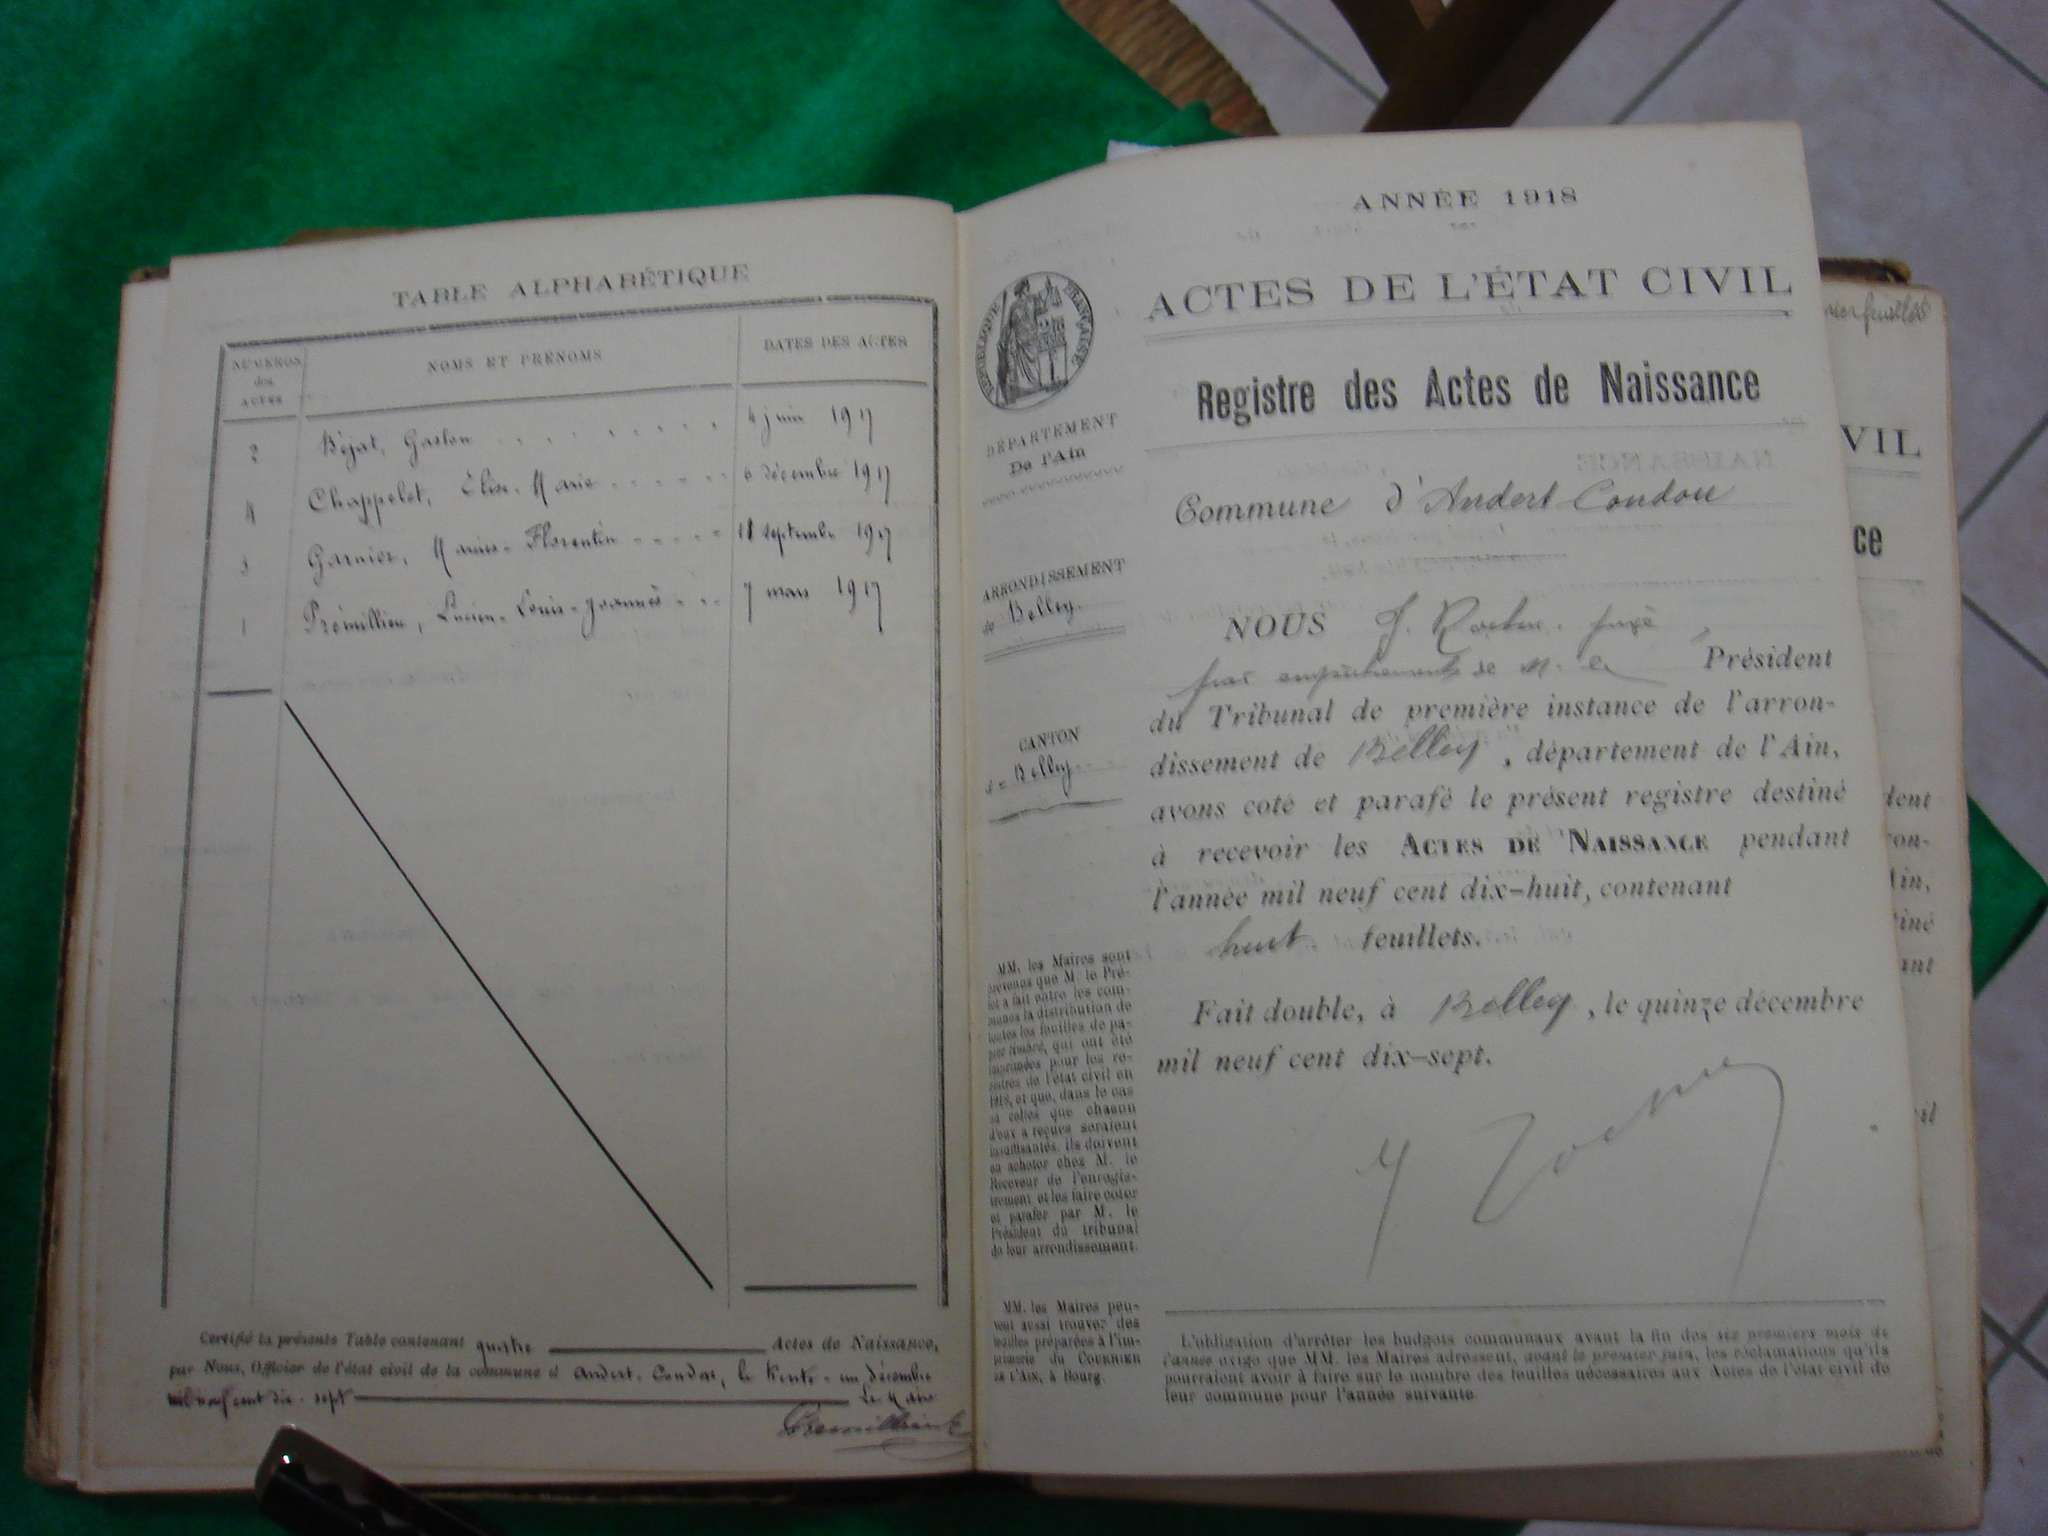 TABLE ALPHABÉTIQUE
NUMÉROS des ACTES
NOMS ET PRÉNOMS
DATES DES ACTES
2 Béjat, Gaston 4 juin 1917
4 Chappelet, Élise-Marie 6 décembre 1917
3 Garnier, Marius-Florentin 18 septembre 1917
1 Prémillieu, Lucien-Louis-Joannès 7 mars 1917
Certifié la présente Table contenant quatre Actes de Naissance,
par Nous, Officier de l'état civil de la commune d' Andert-Condon, le trente-un décembre
mil neuf cent dix-sept Le Maire
ANNÉE 1918
ACTES DE L'ÉTAT CIVIL
RÉPUBLIQUE FRANÇAISE
Registre des Actes de Naissance
DÉPARTEMENT
De l'Ain
Commune d'Andert-Condon
ARRONDISSEMENT
de Belley.
CANTON
de Belley
NOUS J. juge
par empêchement de M. le Président
du Tribunal de première instance de l'arron-
dissement de Belley, département de l'Ain,
avons coté et parafé le présent registre destiné
à recevoir les ACTES DE NAISSANCE pendant
l'année mil neuf cent dix-huit, contenant
huit feuillets.
Fait double, à Belley, le quinze décembre
mil neuf cent dix-sept.
MM. les Maires sont
prévenus que M. le Pré-
fet a fait entre les com-
munes la distribution de
toutes les feuilles de pa-
pier timbré, qui ont été
imprimées pour les re-
gistres de l'état civil en
1918, et que, dans le cas
où celles que chacun
d'eux a reçues seraient
insuffisantes, ils doivent
en acheter chez M. le
Receveur de l'enregis-
trement et les faire coter
et parafer par M. le
Président du tribunal
de leur arrondissement.
MM. les Maires peu-
vent aussi trouver des
feuilles préparées à l'im-
primerie du COURRIER
DE L'AIN, à Bourg.
L'obligation d'arrêter les budgets communaux avant la fin des six premiers mois de
l'année exige que MM. les Maires adressent, avant le premier juin, les réclamations qu'ils
pourraient avoir à faire sur le nombre des feuilles nécessaires aux Actes de l'état civil de
leur commune pour l'année suivante.
VIL
ce